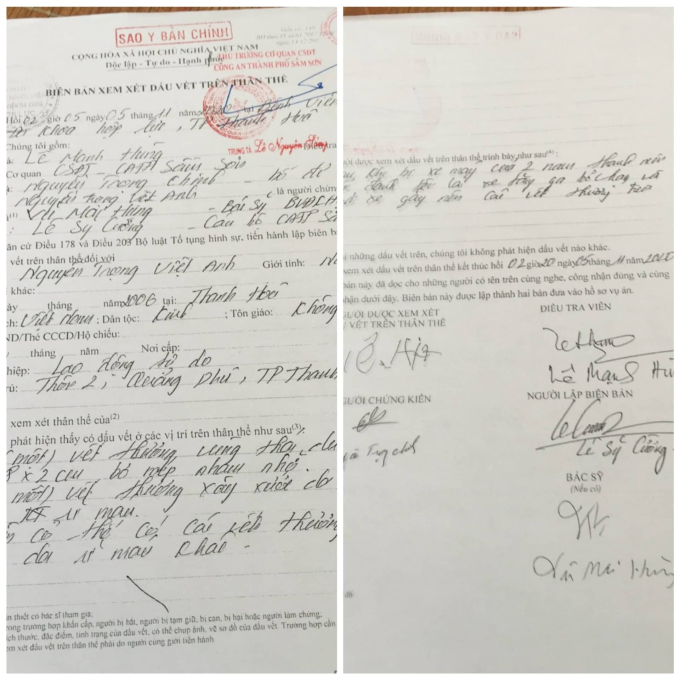 SAO Y BẢN CHÍNH
CỘNG HÒA XÃ HỘI CHỦ NGHĨA VIỆT NAM
Độc lập - Tự do - Hạnh phúc
THỦ TRƯỞNG CƠ QUAN CSĐT
CÔNG AN THÀNH PHỐ SẦM SƠN
BIÊN BẢN XEM XÉT DẤU VẾT TRÊN THÂN THỂ
Hồi 02 giờ 05 ngày 05 tháng 11 năm tại
Khoa hợp lực, TP Thanh Hoá
TRUNG TÁ Lê Nguyên
Chúng tôi gồm:
Lê Mạnh Hùng
Cơ quan CSĐT - CATP Sầm Sơn
Nguyễn Trọng Chinh - bố đẻ
Nguyễn Trọng Việt Anh
là người chứng
Vũ Mai Hùng - Bác sỹ
Lê Sỹ Cường - Cán bộ CATP Sầ
ăn cứ Điều 178 và Điều 203 Bộ luật Tố tụng hình sự, tiến hành lập biên bả
vết trên thân thể đối với
Nguyễn Trọng Việt Anh Giới tính: N
khác:
ày tháng năm 2006 tại: Thanh Hoá
ch: Việt Nam; Dân tộc: Kinh; Tôn giáo: Không
ND/Thẻ CCCD/Hộ chiếu:
tháng năm Nơi cấp:
hiệp: Lao động tự do
rú: Thôn 2, Quảng Phú, TP Thanh
xem xét thân thể của(2)
phát hiện thấy có dấu vết ở các vị trí trên thân thể như sau(3):
một) vết thương vùng thái du
x 2 cm bờ mép nham nhở.
một) vết thương xây xước da
rỉ máu.
có thể có các vết thương
da rỉ máu khác -
ần thiết có bác sĩ tham gia.
rong trường hợp khẩn cấp, người bị bắt, người bị tạm giữ, bị can, bị hại hoặc người làm chứng,
ích thước, đặc điểm, tình trạng của dấu vết, có thể chụp ảnh, vẽ sơ đồ của dấu vết. Trường hợp cần
em xét dấu vết trên thân thể phải do người cùng giới tiến hành
SAO Y BẢN CHÍNH
ời được xem xét dấu vết trên thân thể trình bày như sau(4):
khi bị xe máy của 2 nam thanh niên
xe tay ga bỏ chạy và
xe gây nên các vết thương trên
i những dấu vết trên, chúng tôi không phát hiện dấu vết nào khác.
xem xét dấu vết trên thân thể kết thúc hồi 02 giờ 20 ngày 05 tháng 11 năm
bản này đã đọc cho những người có tên trên cùng nghe, công nhận đúng và cùng
nhận dưới đây. Biên bản này được lập thành hai bản đưa vào hồ sơ vụ án.
GƯỜI ĐƯỢC XEM XÉT
VẾT TRÊN THÂN THỂ
ĐIỀU TRA VIÊN
Lê Mạnh Hù
GƯỜI CHỨNG KIẾN
NGƯỜI LẬP BIÊN BẢN
Lê Sỹ Cường
BÁC SỸ
(Nếu có)
Vũ Mai Hùng